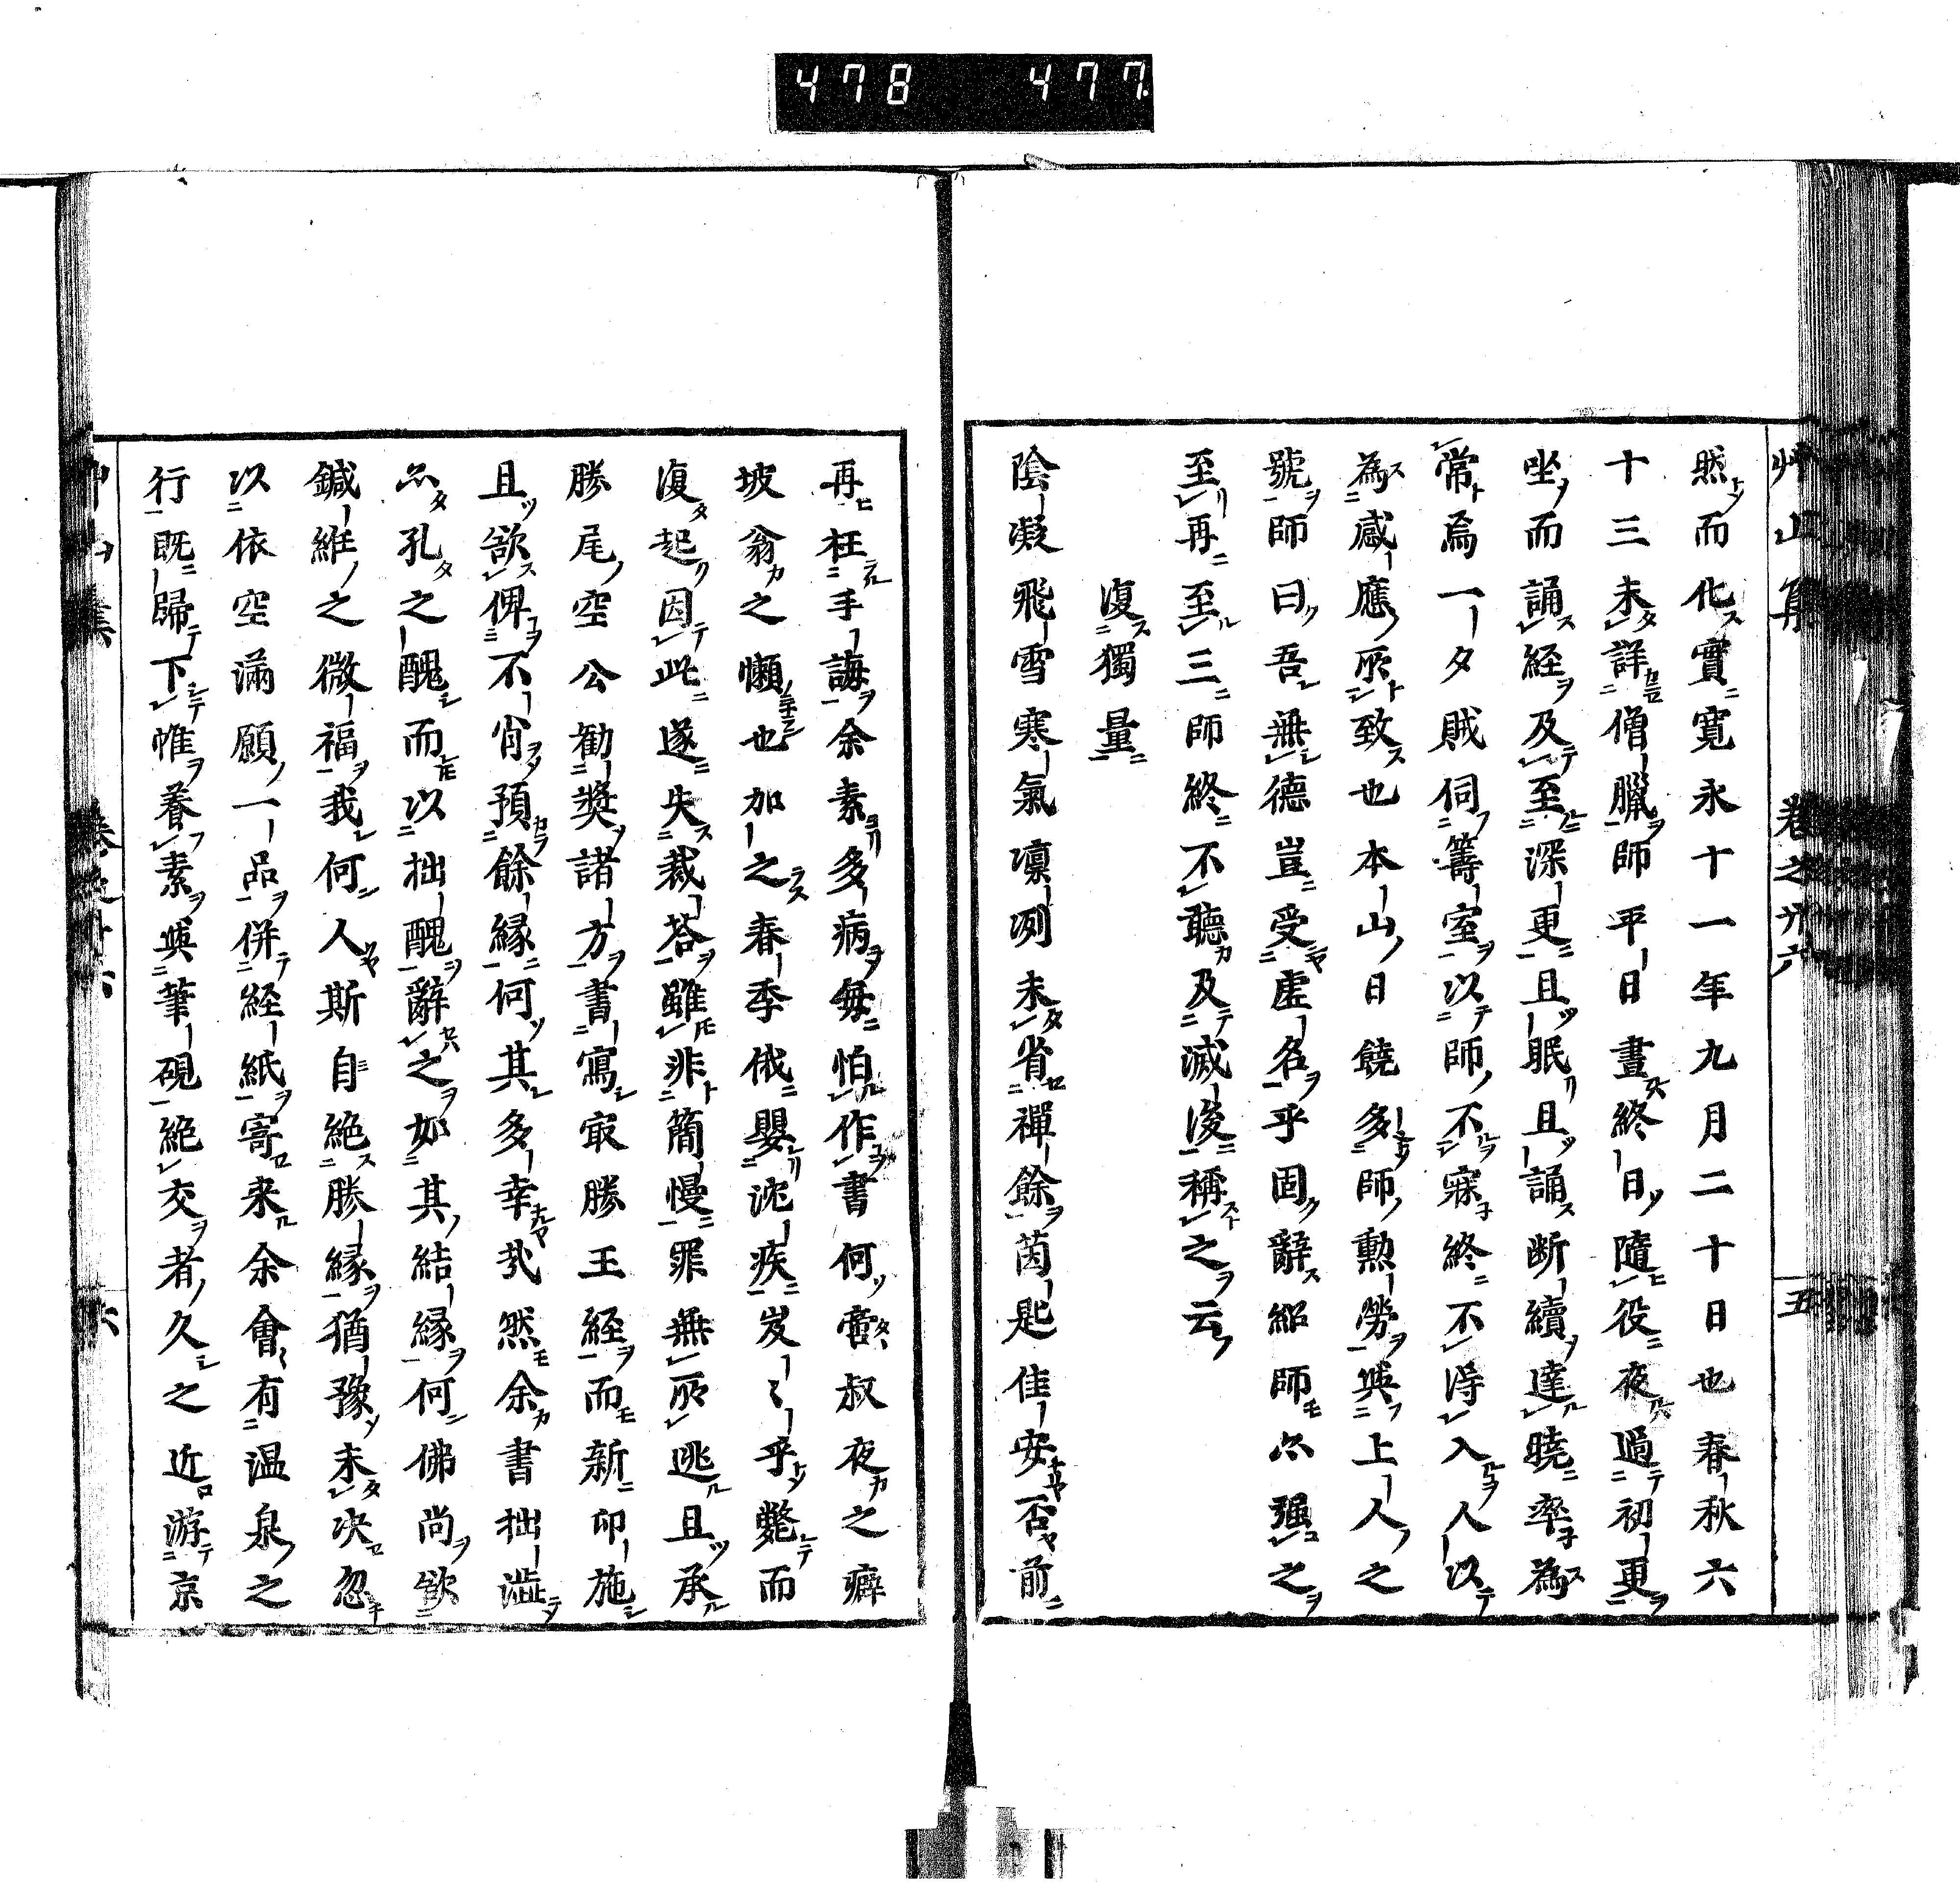 478 477
艸山集 卷之廿六 五
然而化實寬永十一年九月二十日也春秋六
十三未詳僧臘師平日晝終日隨役夜過初更
坐而誦経及至深更且眠且誦断續達曉率為
常焉一夕賊伺籌室以師不寐終不得入人以
為感應所致也本山日饒多師勲勞與上人之
號師曰吾無德豈受虛名乎固辭紹師亦強之
至再至三師終不聽及滅後稱之云
復獨量
陰凝飛雪寒氣凛冽未省禪餘茵匙佳安否前
再枉手誨余素多病毎怕作書何啻叔夜之癖
坡翁之懶也加之春季俄嬰沈疾岌〻乎斃而
復起因此遂失裁荅雖非簡慢罪無所逃且承
勝尾空公勧奬諸方書寫㝡勝王経而新卬施
且欲俾不肖預餘縁何其多幸㢤然余書拙澁
亦孔之醜而以拙醜辭之如其結縁何佛尚欲
鍼維之微福我何人斯自絶勝縁猶豫未决忽
以依空滿願一品併経紙寄来余會有温泉之
行既歸下帷養素與筆硯絶交者久之近游京